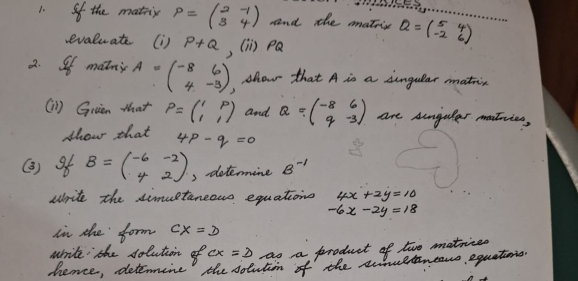 MATRICES
1. If the matrix P = (2 -1 / 3 4) and the matrix Q = (5 4 / -2 6)
evaluate (i) P+Q, (ii) PQ
2. If matrix A = (-8 6 / 4 -3), show that A is a singular matrix
(ii) Given that P = (1 P / 1 1) and Q = (-8 6 / 9 -3) are singular matrices,
show that 4P - q = 0
(3) If B = (-6 -2 / 4 2), determine B⁻¹
write the simultaneous equations 4x + 2y = 10
-6x - 2y = 18
in the form CX = D
write the solution of CX = D as a product of two matrices
hence, determine the solution of the simultaneous equations.